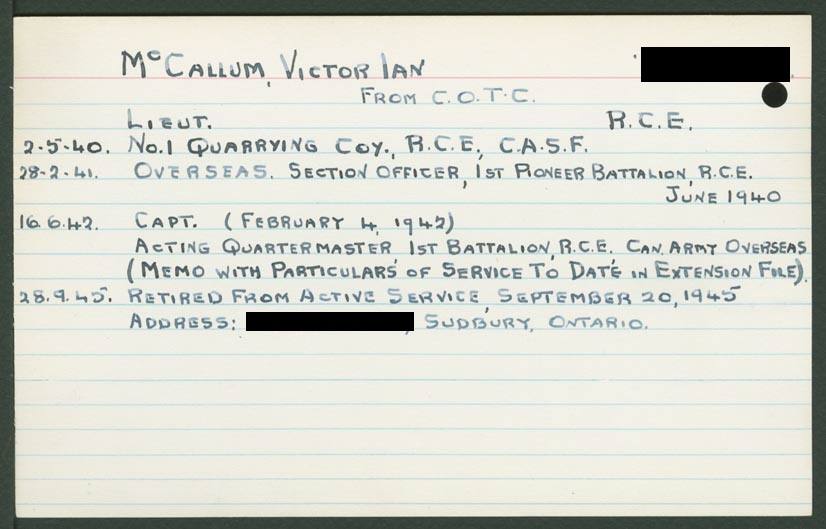 McCALLUM, VICTOR IAN
FROM C.O.T.C.
LIEUT. R.C.E.
2-5-40. No.1 QUARRYING COY., R.C.E., C.A.S.F.
28-2-41. OVERSEAS. SECTION OFFICER, 1ST PIONEER BATTALION, R.C.E.
JUNE 1940
16.6.42. CAPT. (FEBRUARY 4, 1942)
ACTING QUARTERMASTER 1ST BATTALION, R.C.E. CAN. ARMY OVERSEAS
(MEMO WITH PARTICULARS OF SERVICE TO DATE IN EXTENSION FILE).
28.9.45. RETIRED FROM ACTIVE SERVICE, SEPTEMBER 20, 1945
ADDRESS: , SUDBURY, ONTARIO.